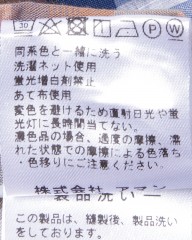 30 P W
同系色と一緒に洗う
洗濯ネット使用
蛍光増白剤禁止
あて布使用
変色を避けるため直射日光や蛍
光灯に長時間当てない。
濃色品の場合、過度の摩擦、濡
れた状態での摩擦による色落ち
・色移りにご注意ください。
株式会社
この製品は、縫製後、製品洗い
をしております。